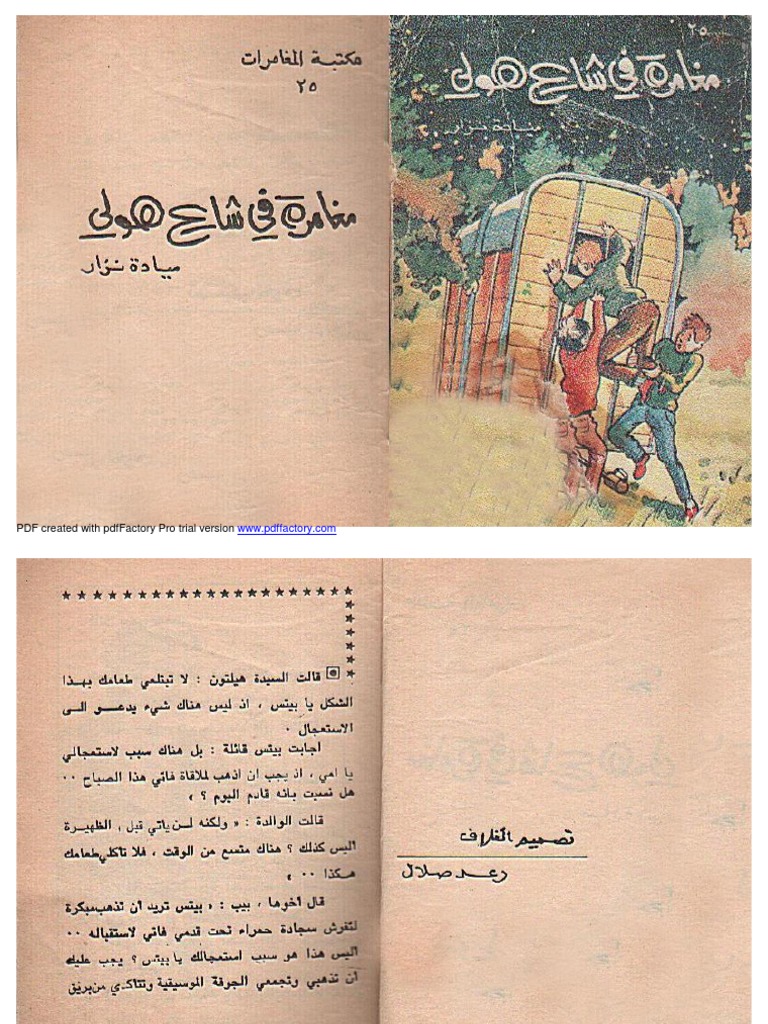 ٢٥
مغامرة في شارع هولي
ميادة نزار
مكتبة المغامرات
٢٥
مغامرة في شارع هولي
ميادة نزار
PDF created with pdfFactory Pro trial version www.pdffactory.com
تصميم الغلاف
رعد صلال
قالت السيدة هيلتون : لا تبتلعي طعامك بهذا
الشكل يا بيتس ، اذ ليس هناك شيء يدعو الى
الاستعجال .
اجابت بيتس قائلة : بل هناك سبب لاستعجالي
يا امي ، اذ يجب ان اذهب لملاقاة فاتي هذا الصباح ..
هل نسيت بانه قادم اليوم ؟ »
قالت الوالدة : « ولكنه لن ياتي قبل الظهيرة
اليس كذلك ؟ هناك متسع من الوقت ، فلا تأكلي طعامك
هكذا .. »
قال أخوها ، بيب : « بيتس تريد ان تذهب مبكرة
لتفرش سجادة حمراء تحت قدمي فاتي لاستقباله ..
اليس هذا هو سبب استعجالك يا بيتس ؟ يجب عليك
أن تذهبي وتجمعي الجوقة الموسيقية وتتاكدي من بريق